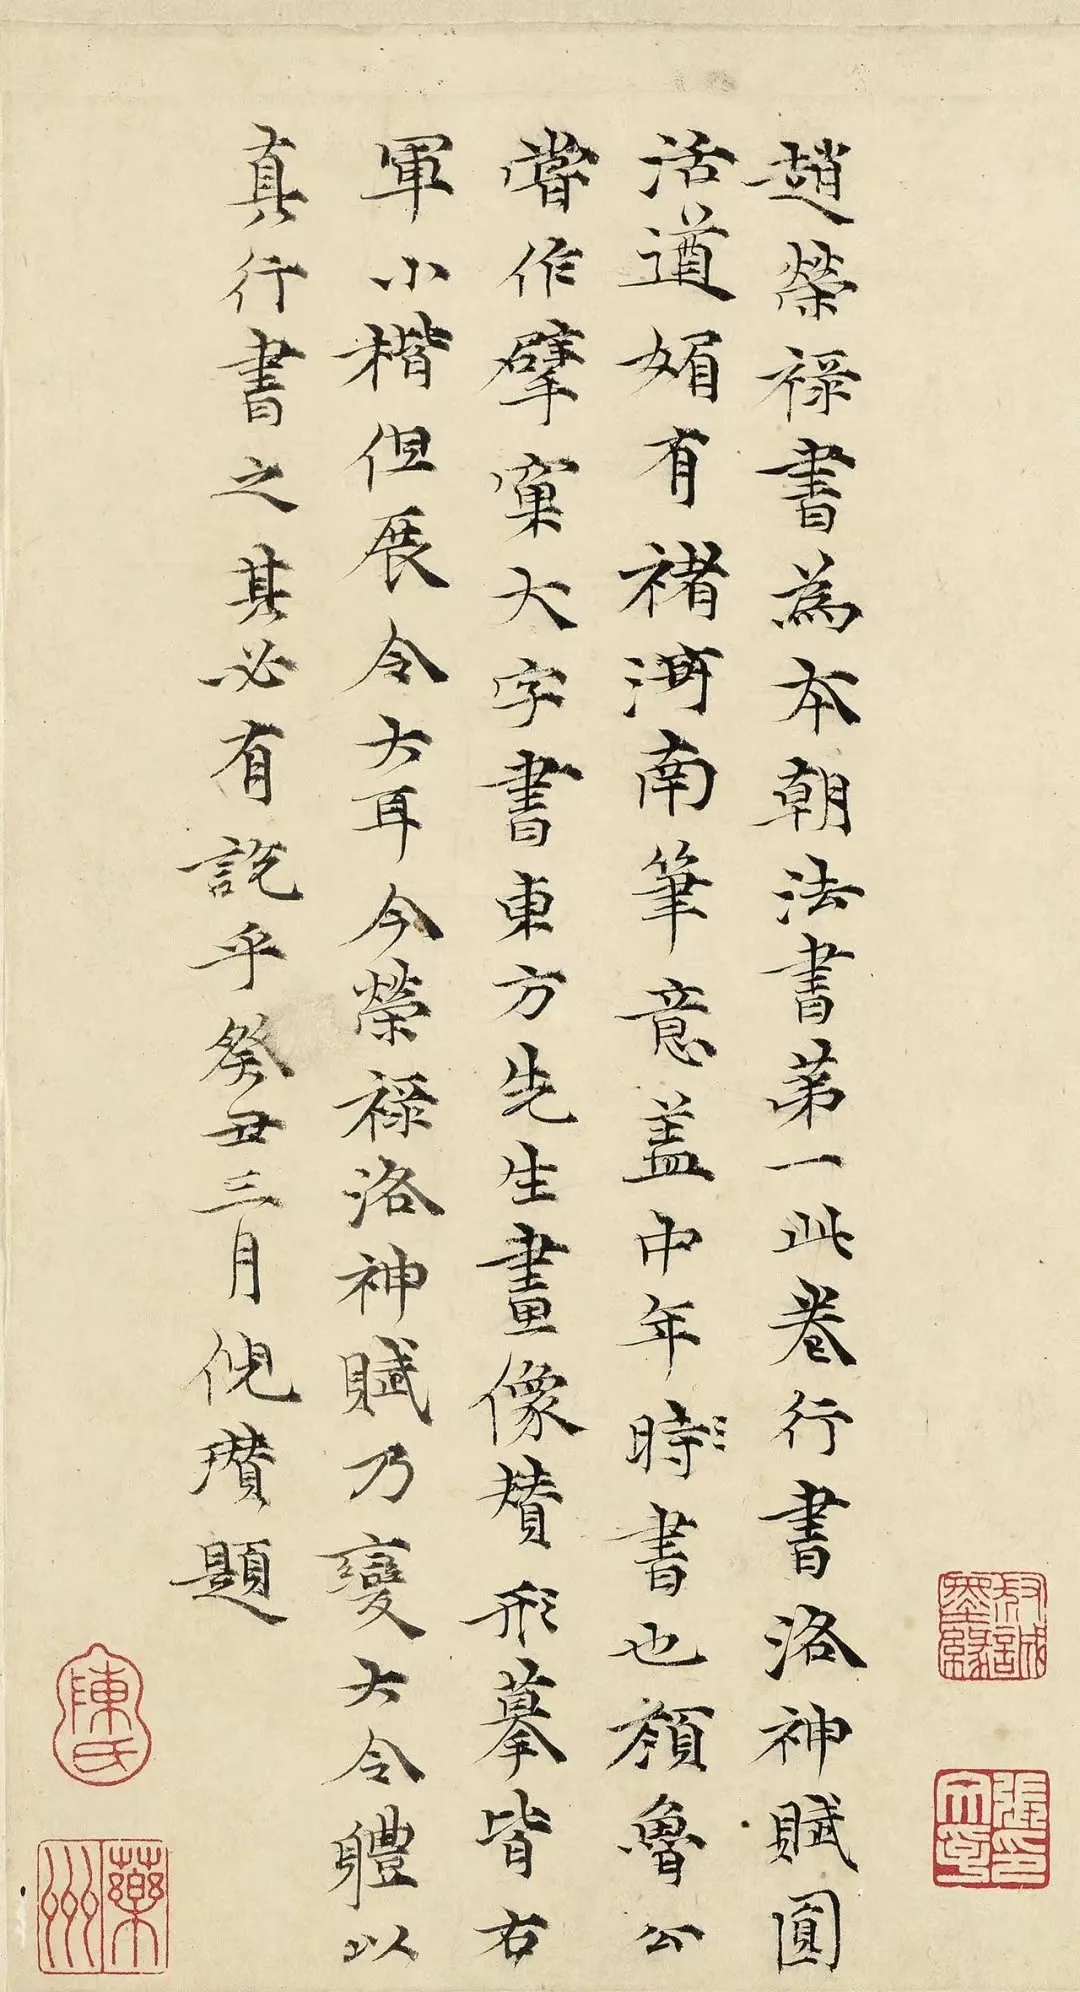 趙榮祿書為本朝法書第一此卷行書洛神賦圓
活遒媚有褚河南筆意蓋中年時書也顏魯公
嘗作擘窠大字書東方先生畫像贊形摹皆右
軍小楷但展令大耳今榮祿洛神賦乃變大令體以
真行書之其必有說乎癸丑三月倪瓚題
陳氏
蘂州